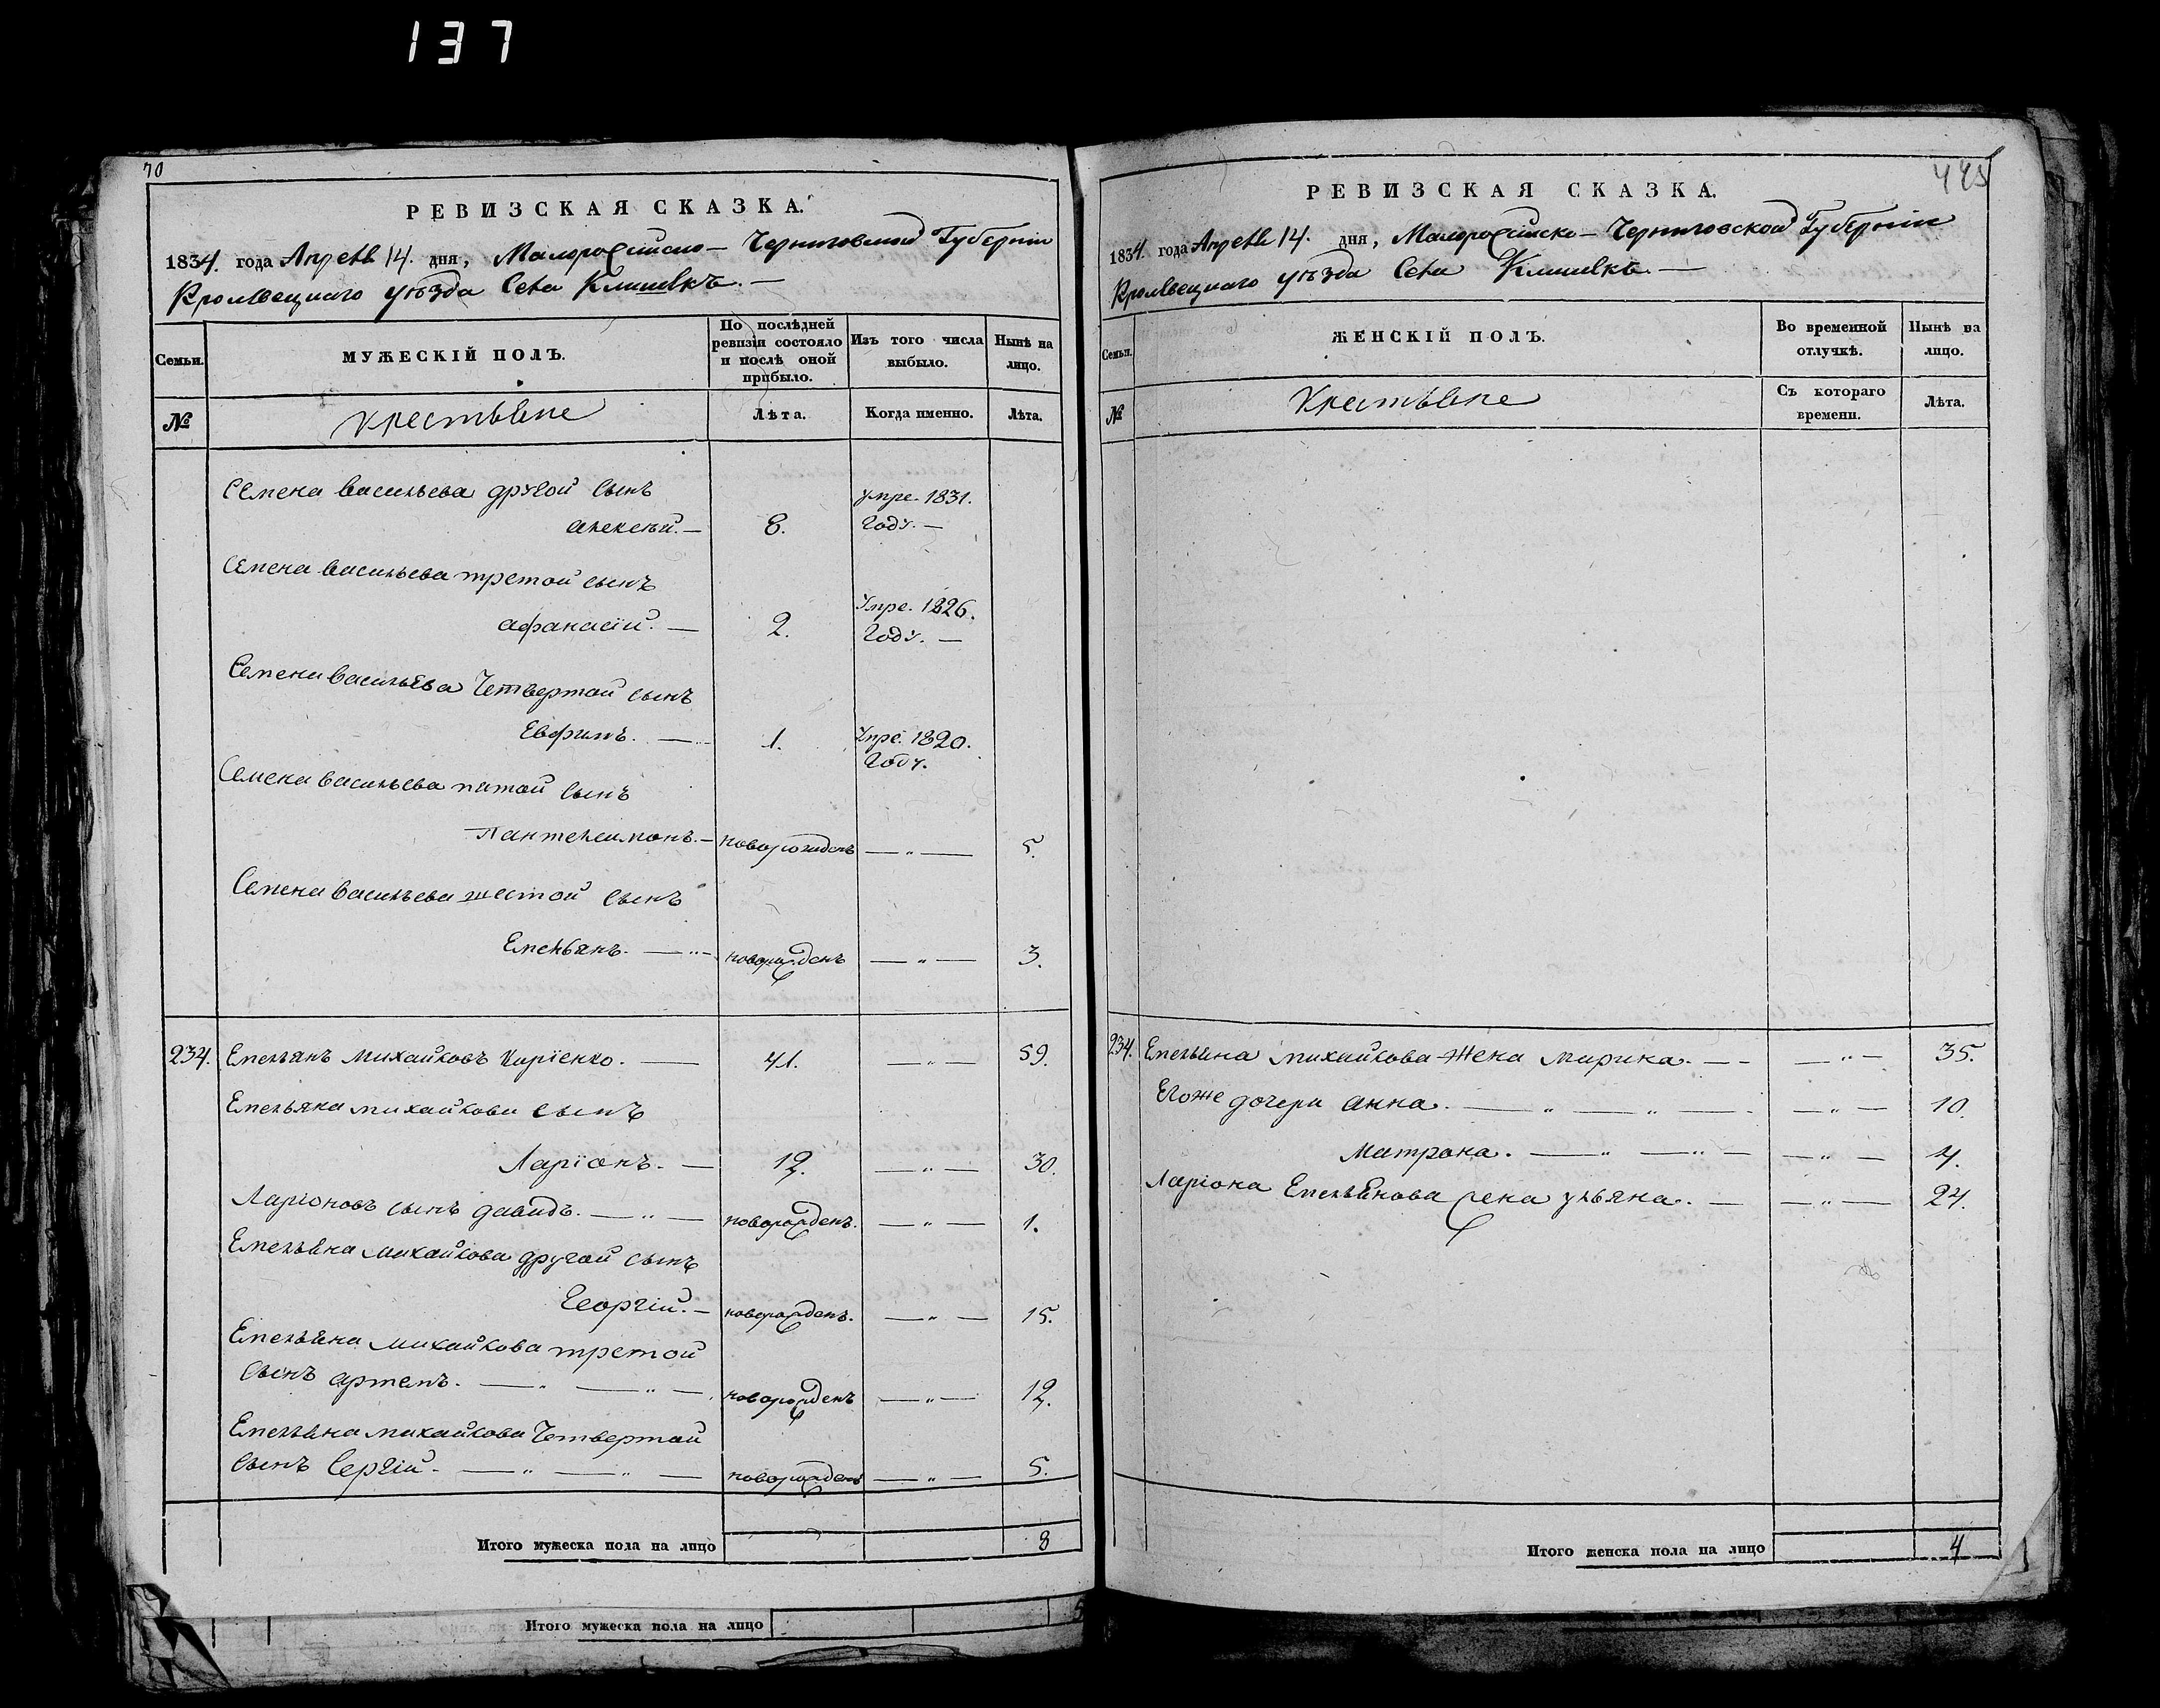 137
70
РЕВИЗСКАЯ СКАЗКА.
1834. года Апреля 14. дня, Малоросійско – Черниговской Губерніи
Кролевецкаго уѣзда Села Клишекъ. —
Семьи.
МУЖЕСКІЙ ПОЛЪ.
По послѣдней ревизіи состояло и послѣ оной прибыло.
Изъ того числа выбыло.
Нынѣ на лицо.
№
Крестьяне
Лѣта.
Когда именно.
Лѣта.
Семена Васильева другой сынъ
Алексѣй. — 8. Умре. 1831. Году. —
Семена Васильева третой сынъ
Афанасій. — 2. Умре. 1826. Году. —
Семена Васильева Четвертой сынъ
Евфимъ. — 1. Умре. 1820. Году.
Семена Васильева пятой Сынъ
Пантелеимонъ. — новорожденъ — „ — 5.
Семена Васильева шестой Сынъ
Емельянъ. — „ — новорожденъ — „ — 3.
234. Емельянъ Михайловъ Киріенко. — 41. — „ — 59.
Емельяна Михайлова сынъ
Ларіонъ. — 12. — „ — 30.
Ларіоновъ сынъ давидъ. — „ — новорожденъ. — „ — 1.
Емельяна Михайлова другой сынъ
Георгій. — новорожденъ. — „ — 15.
Емельяна Михайлова третой
Сынъ артемъ. — „ — „ — новорожденъ — „ — 12.
Емельяна Михайлова Четвертой
Сынъ Сергій. — „ — „ — новорожденъ — „ — 5.
Итого мужеска пола на лицо 8
Итого мужеска пола на лицо
445
РЕВИЗСКАЯ СКАЗКА.
1834. года Апреля 14. дня, Малоросійско – Черниговской Губерніи
Кролевецкаго уѣзда Села Клишекъ. —
Семьи.
ЖЕНСКІЙ ПОЛЪ.
Во временной отлучкѣ.
Нынѣ на лицо.
№
Крестьяне
Съ котораго времени.
Лѣта.
234. Емельяна Михайлова Жена Марина. — — „ — 35.
Егоже дочери Анна. — „ — „ — — „ — 10.
Матрона. — „ — „ — — „ — 4.
Ларіона Емельянова жена ульяна. — — „ — 24.
Итого женска пола на лицо 4